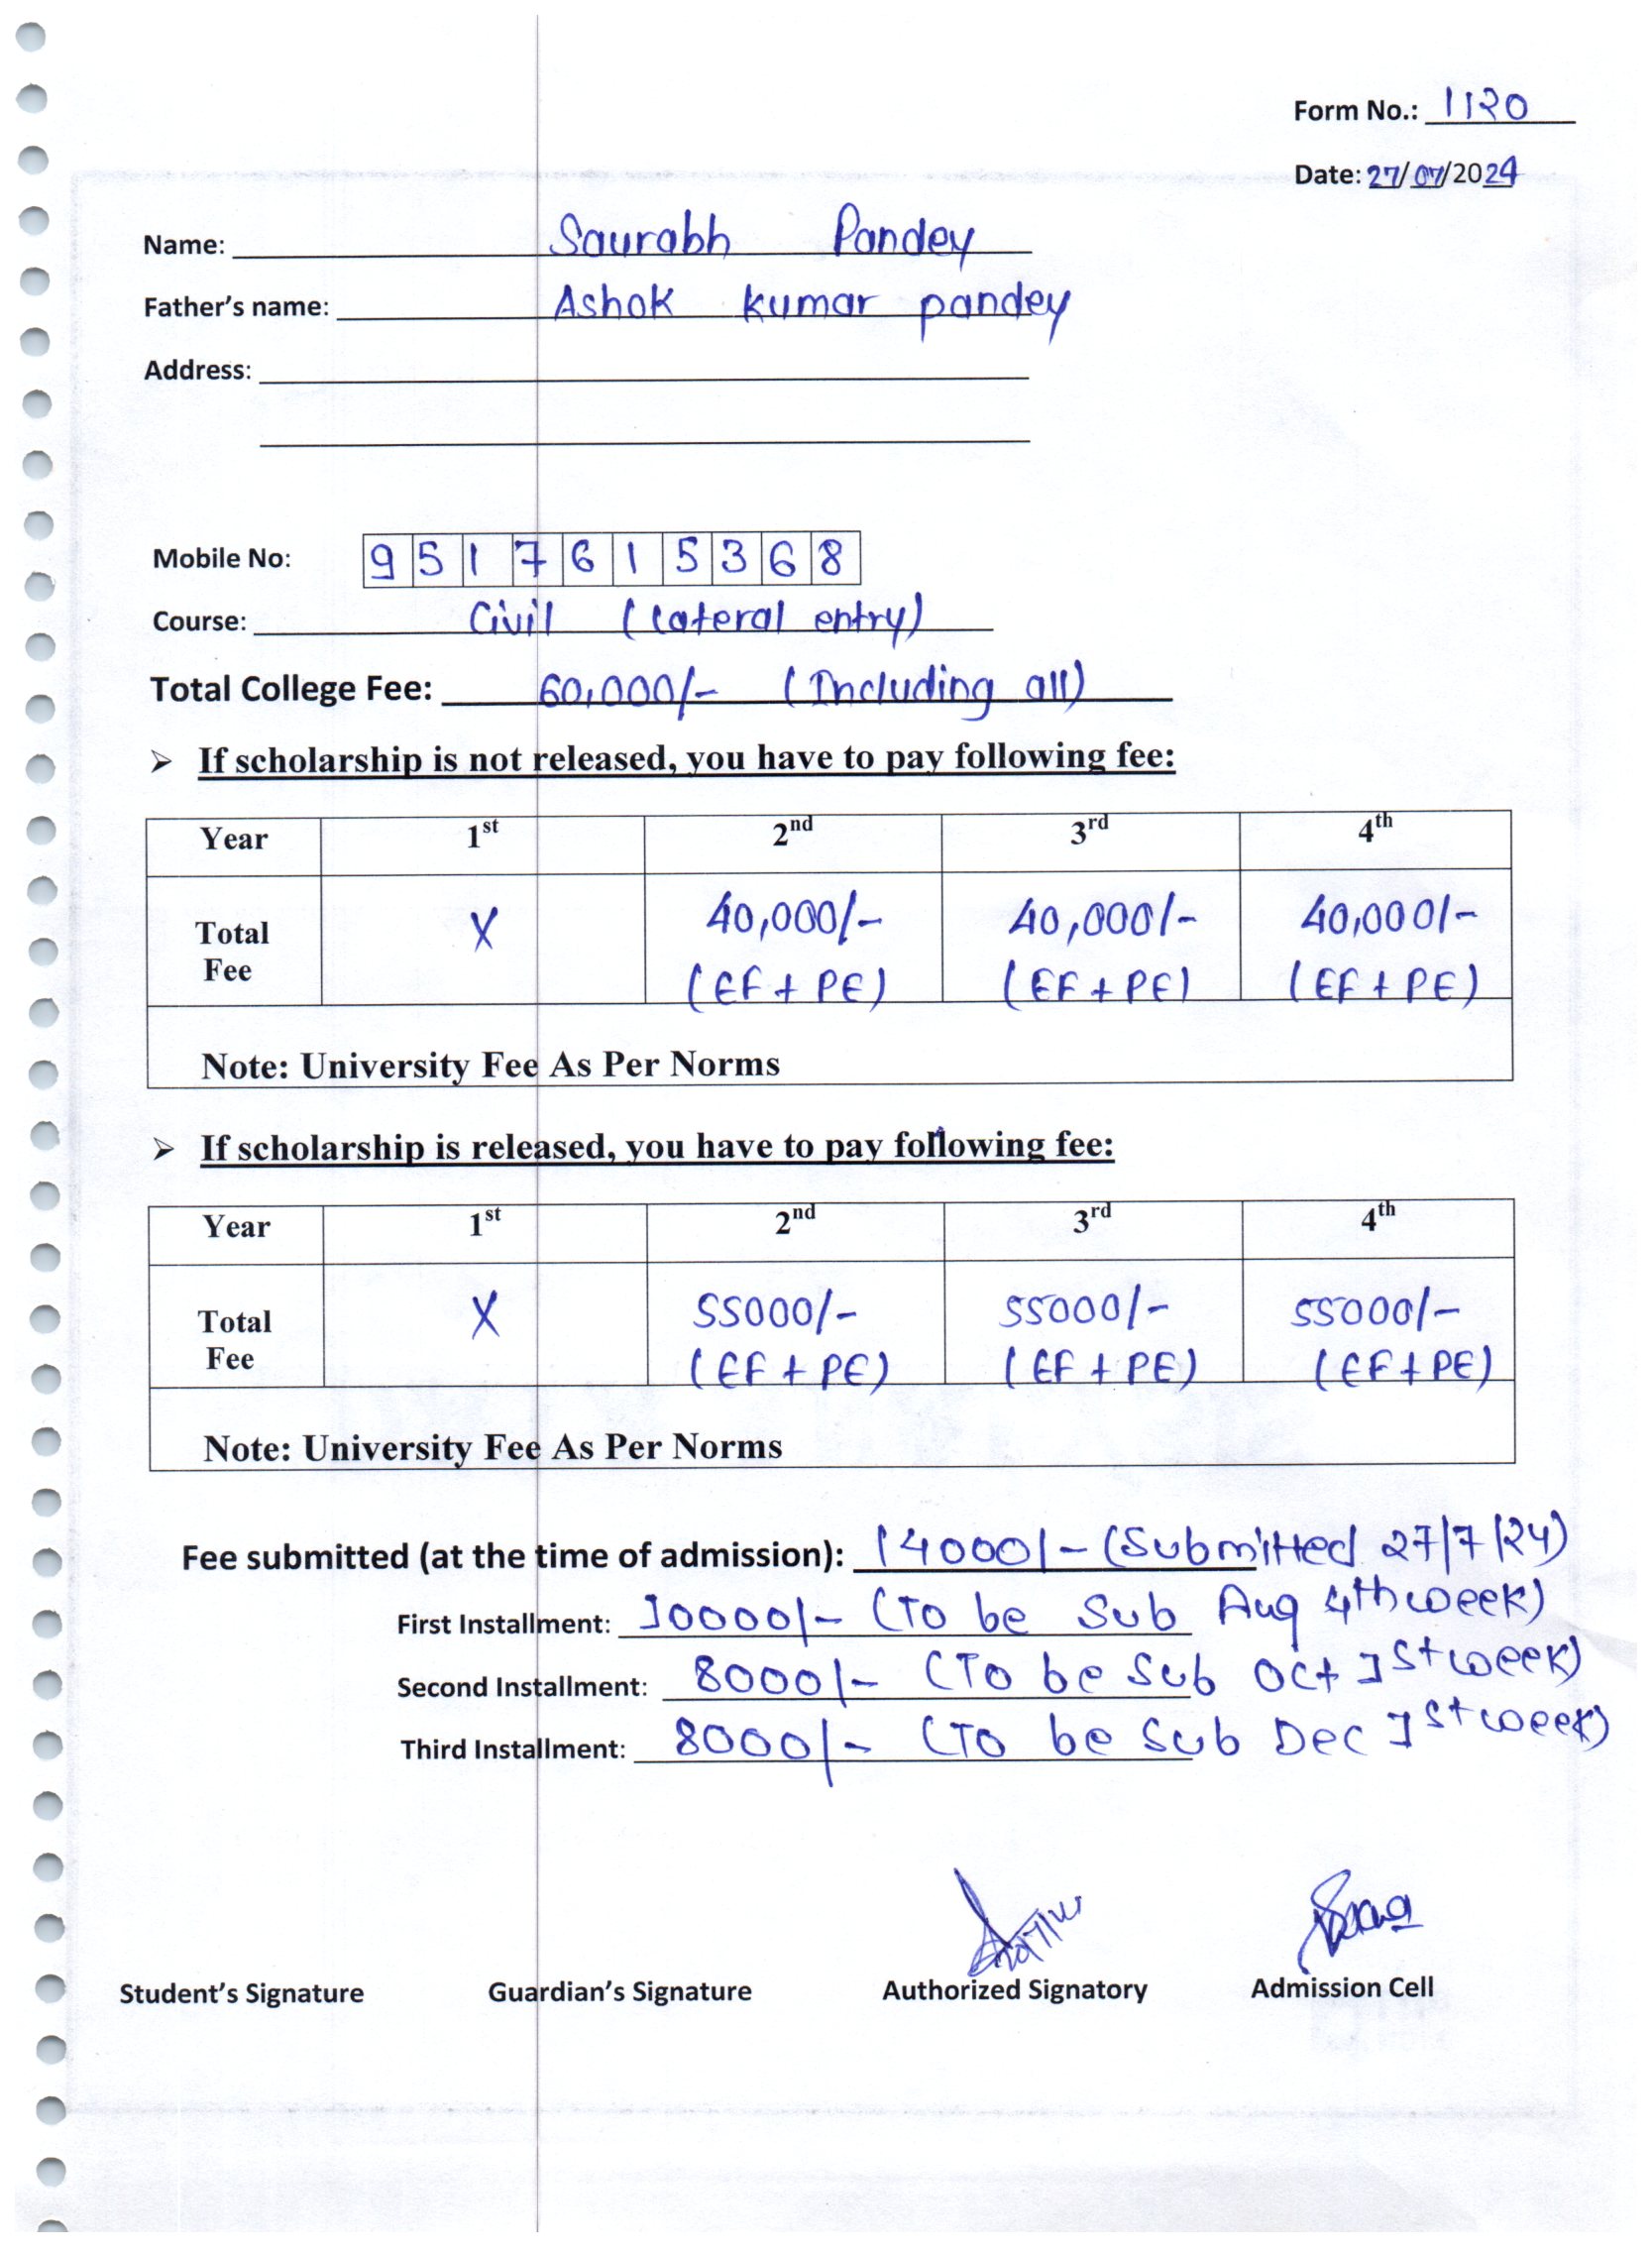 Form No.: 1120
Date: 27/07/2024
Name: Saurabh Pandey
Father's name: Ashok kumar pandey
Address:
Mobile No: 9 5 1 7 6 1 5 3 6 8
Course: Civil (lateral entry)
Total College Fee: 60,000/- (Including all)
➢ If scholarship is not released, you have to pay following fee:
Year 1st 2nd 3rd 4th
Total Fee X 40,000/- (EF + PE) 40,000/- (EF + PE) 40,000/- (EF + PE)
Note: University Fee As Per Norms
➢ If scholarship is released, you have to pay following fee:
Year 1st 2nd 3rd 4th
Total Fee X 55000/- (EF + PE) 55000/- (EF + PE) 55000/- (EF + PE)
Note: University Fee As Per Norms
Fee submitted (at the time of admission): 14000/- (Submitted 27/7/24)
First Installment: 10000/- (To be Sub Aug 4th week)
Second Installment: 8000/- (To be Sub Oct 1st week)
Third Installment: 8000/- (To be Sub Dec 1st week)
Student's Signature Guardian's Signature Authorized Signatory Admission Cell